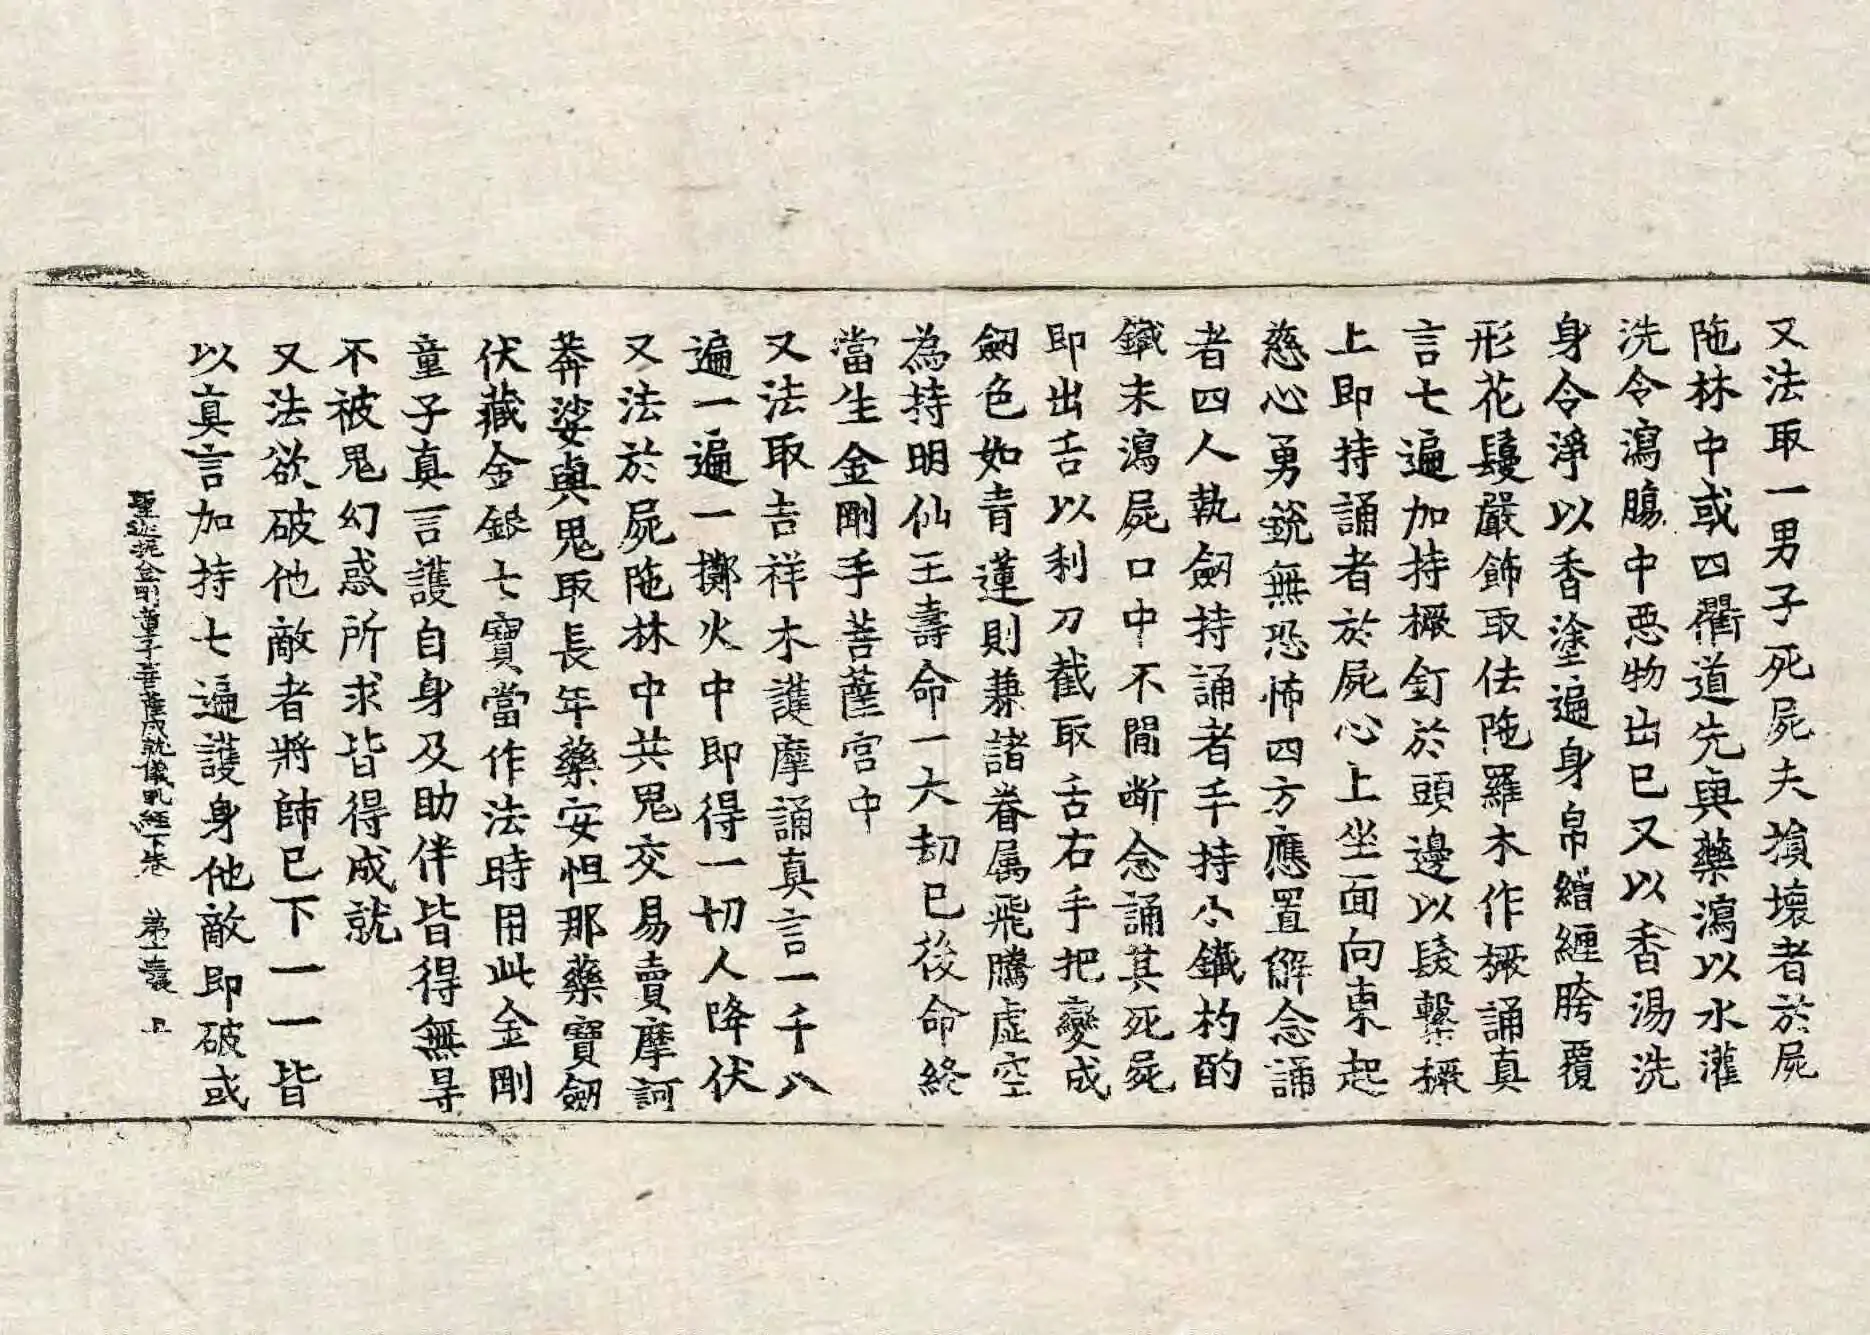 又法取一男子死屍夫損壞者於屍
陁林中或四衢道先與藥瀉以水灌
洗令瀉膓中悪物出已又以香湯洗
身令淨以香塗遍身帛繒纏胯覆
形花鬘嚴飾取佉陁羅木作橛誦真
言七遍加持橛釘於頭邊以髮繫橛
上即持誦者於屍心上坐面向東起
慈心勇銳無恐怖四方應置解念誦
者四人執劒持誦者手持小鐵杓酌
鐵末瀉屍口中不間断念誦其死屍
即出舌以利刀截取舌右手把變成
劒色如青蓮則兼諸眷属飛騰虚空
為持明仙王壽命一大劫已後命終
當生金剛手菩薩宫中
又法取吉祥木護摩誦真言一千八
遍一遍一擲火中即得一切人降伏
又法於屍陁林中共鬼交易賣摩訶
莾娑與鬼取長年藥安怛那藥寶劒
伏藏金銀七寶當作法時用此金剛
童子真言護自身及助伴皆得無㝵
不被鬼幻惑所求皆得成就
又法欲破他敵者將師已下一一皆
以真言加持七遍護身他敵即破或
聖迦抳金剛童子菩薩成就儀軌經下卷 第二張 上